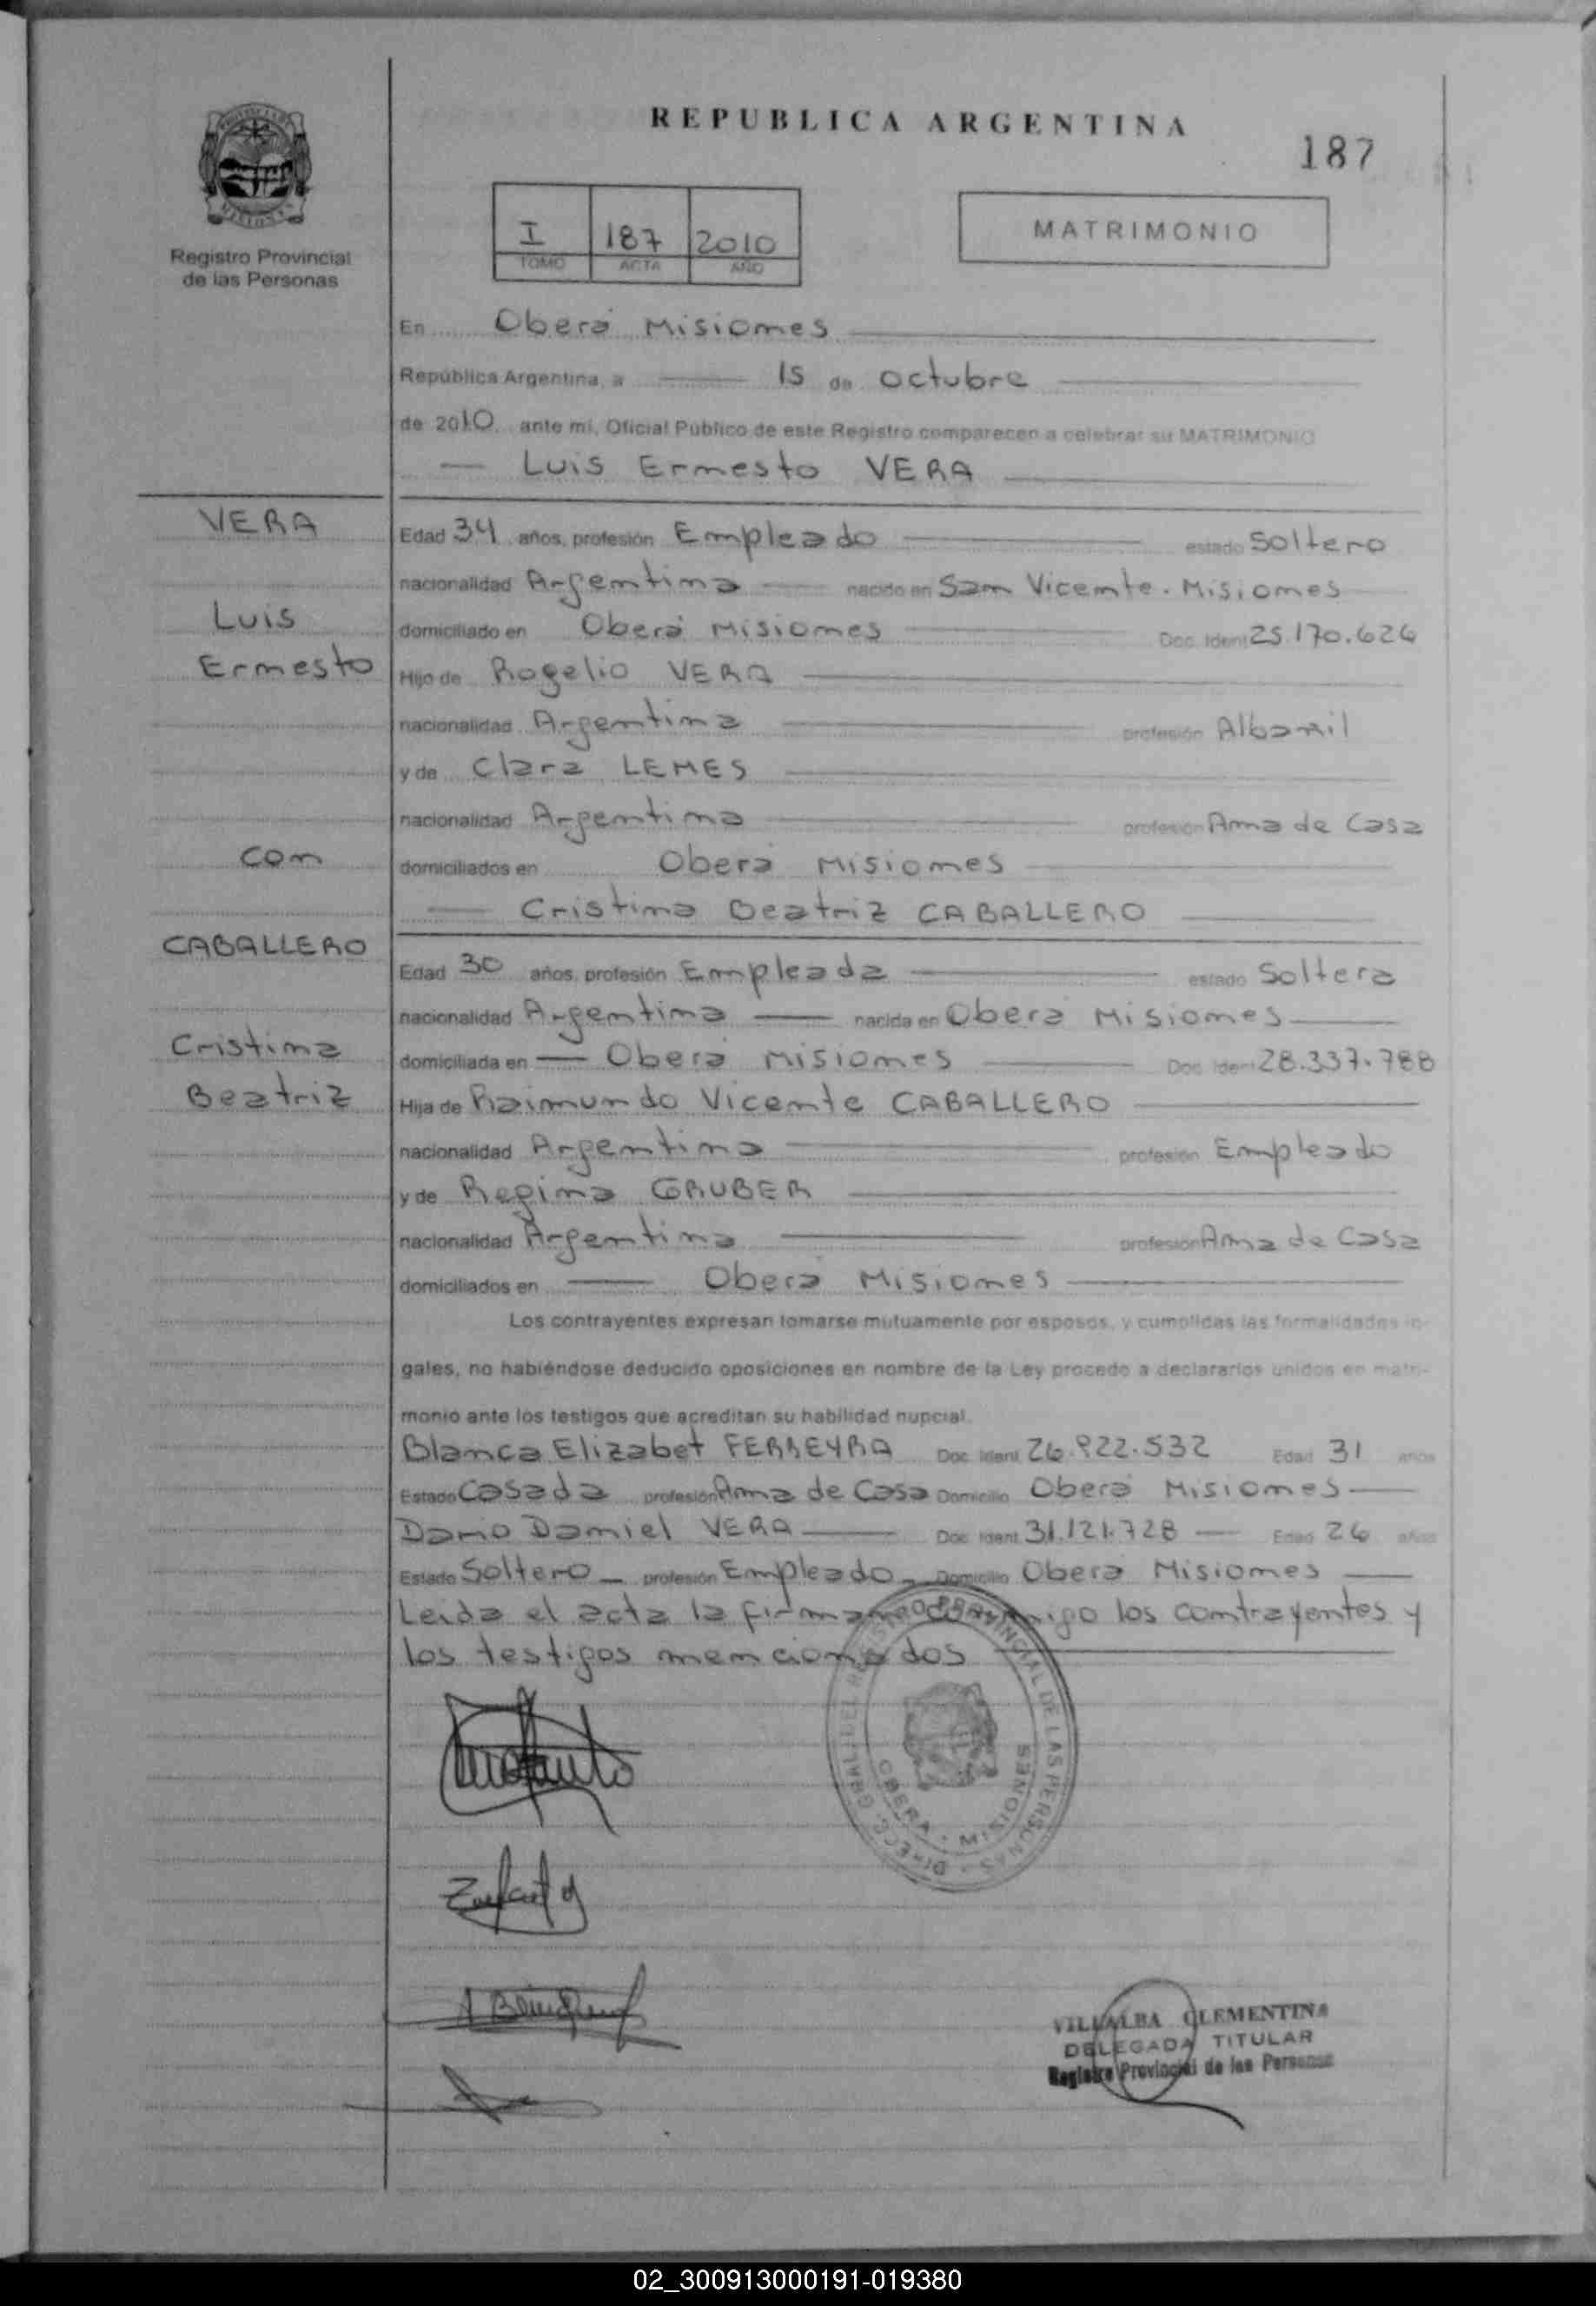 REPUBLICA ARGENTINA
187
Registro Provincial
de las Personas
I 187 2010
TOMO ACTA AÑO
MATRIMONIO
En Oberá Misiones
República Argentina, a 15 de octubre
de 2010 ante mí, Oficial Público de este Registro comparecen a celebrar su MATRIMONIO
Luis Ernesto VERA
VERA
Luis
Ernesto
con
CABALLERO
Cristina
Beatriz
Edad 34 años, profesión Empleado estado Soltero
nacionalidad Argentina nacido en San Vicente. Misiones
domiciliado en Oberá Misiones Doc. Ident 25.170.626
Hijo de Rogelio VERA
nacionalidad Argentina profesión Albañil
y de Clara LEMES
nacionalidad Argentina profesión Ama de Casa
domiciliados en Oberá Misiones
Cristina Beatriz CABALLERO
Edad 30 años, profesión Empleada estado Soltera
nacionalidad Argentina nacida en Oberá Misiones
domiciliada en Oberá Misiones Doc. Ident 28.337.788
Hija de Raimundo Vicente CABALLERO
nacionalidad Argentina profesión Empleado
y de Regina GRUBER
nacionalidad Argentina profesión Ama de Casa
domiciliados en Oberá Misiones
Los contrayentes expresan tomarse mutuamente por esposos, y cumplidas las formalidades le-
gales, no habiéndose deducido oposiciones en nombre de la Ley procedo a declararlos unidos en matri-
monio ante los testigos que acreditan su habilidad nupcial.
Blanca Elizabet FERREYRA Doc. Ident 26.922.532 Edad 31 años
Estado Casada profesión Ama de Casa Domicilio Oberá Misiones
Dario Daniel VERA Doc. Ident 31.121.728 Edad 26 años
Estado Soltero profesión Empleado Domicilio Oberá Misiones
Leida el acta la firman conmigo los contrayentes y
los testigos mencionados
REGISTRO PROVINCIAL DE LAS PERSONAS
OBERA - MISIONES
VILLALBA CLEMENTINA
DELEGADA TITULAR
Registro Provincial de las Personas
02_300913000191-019380